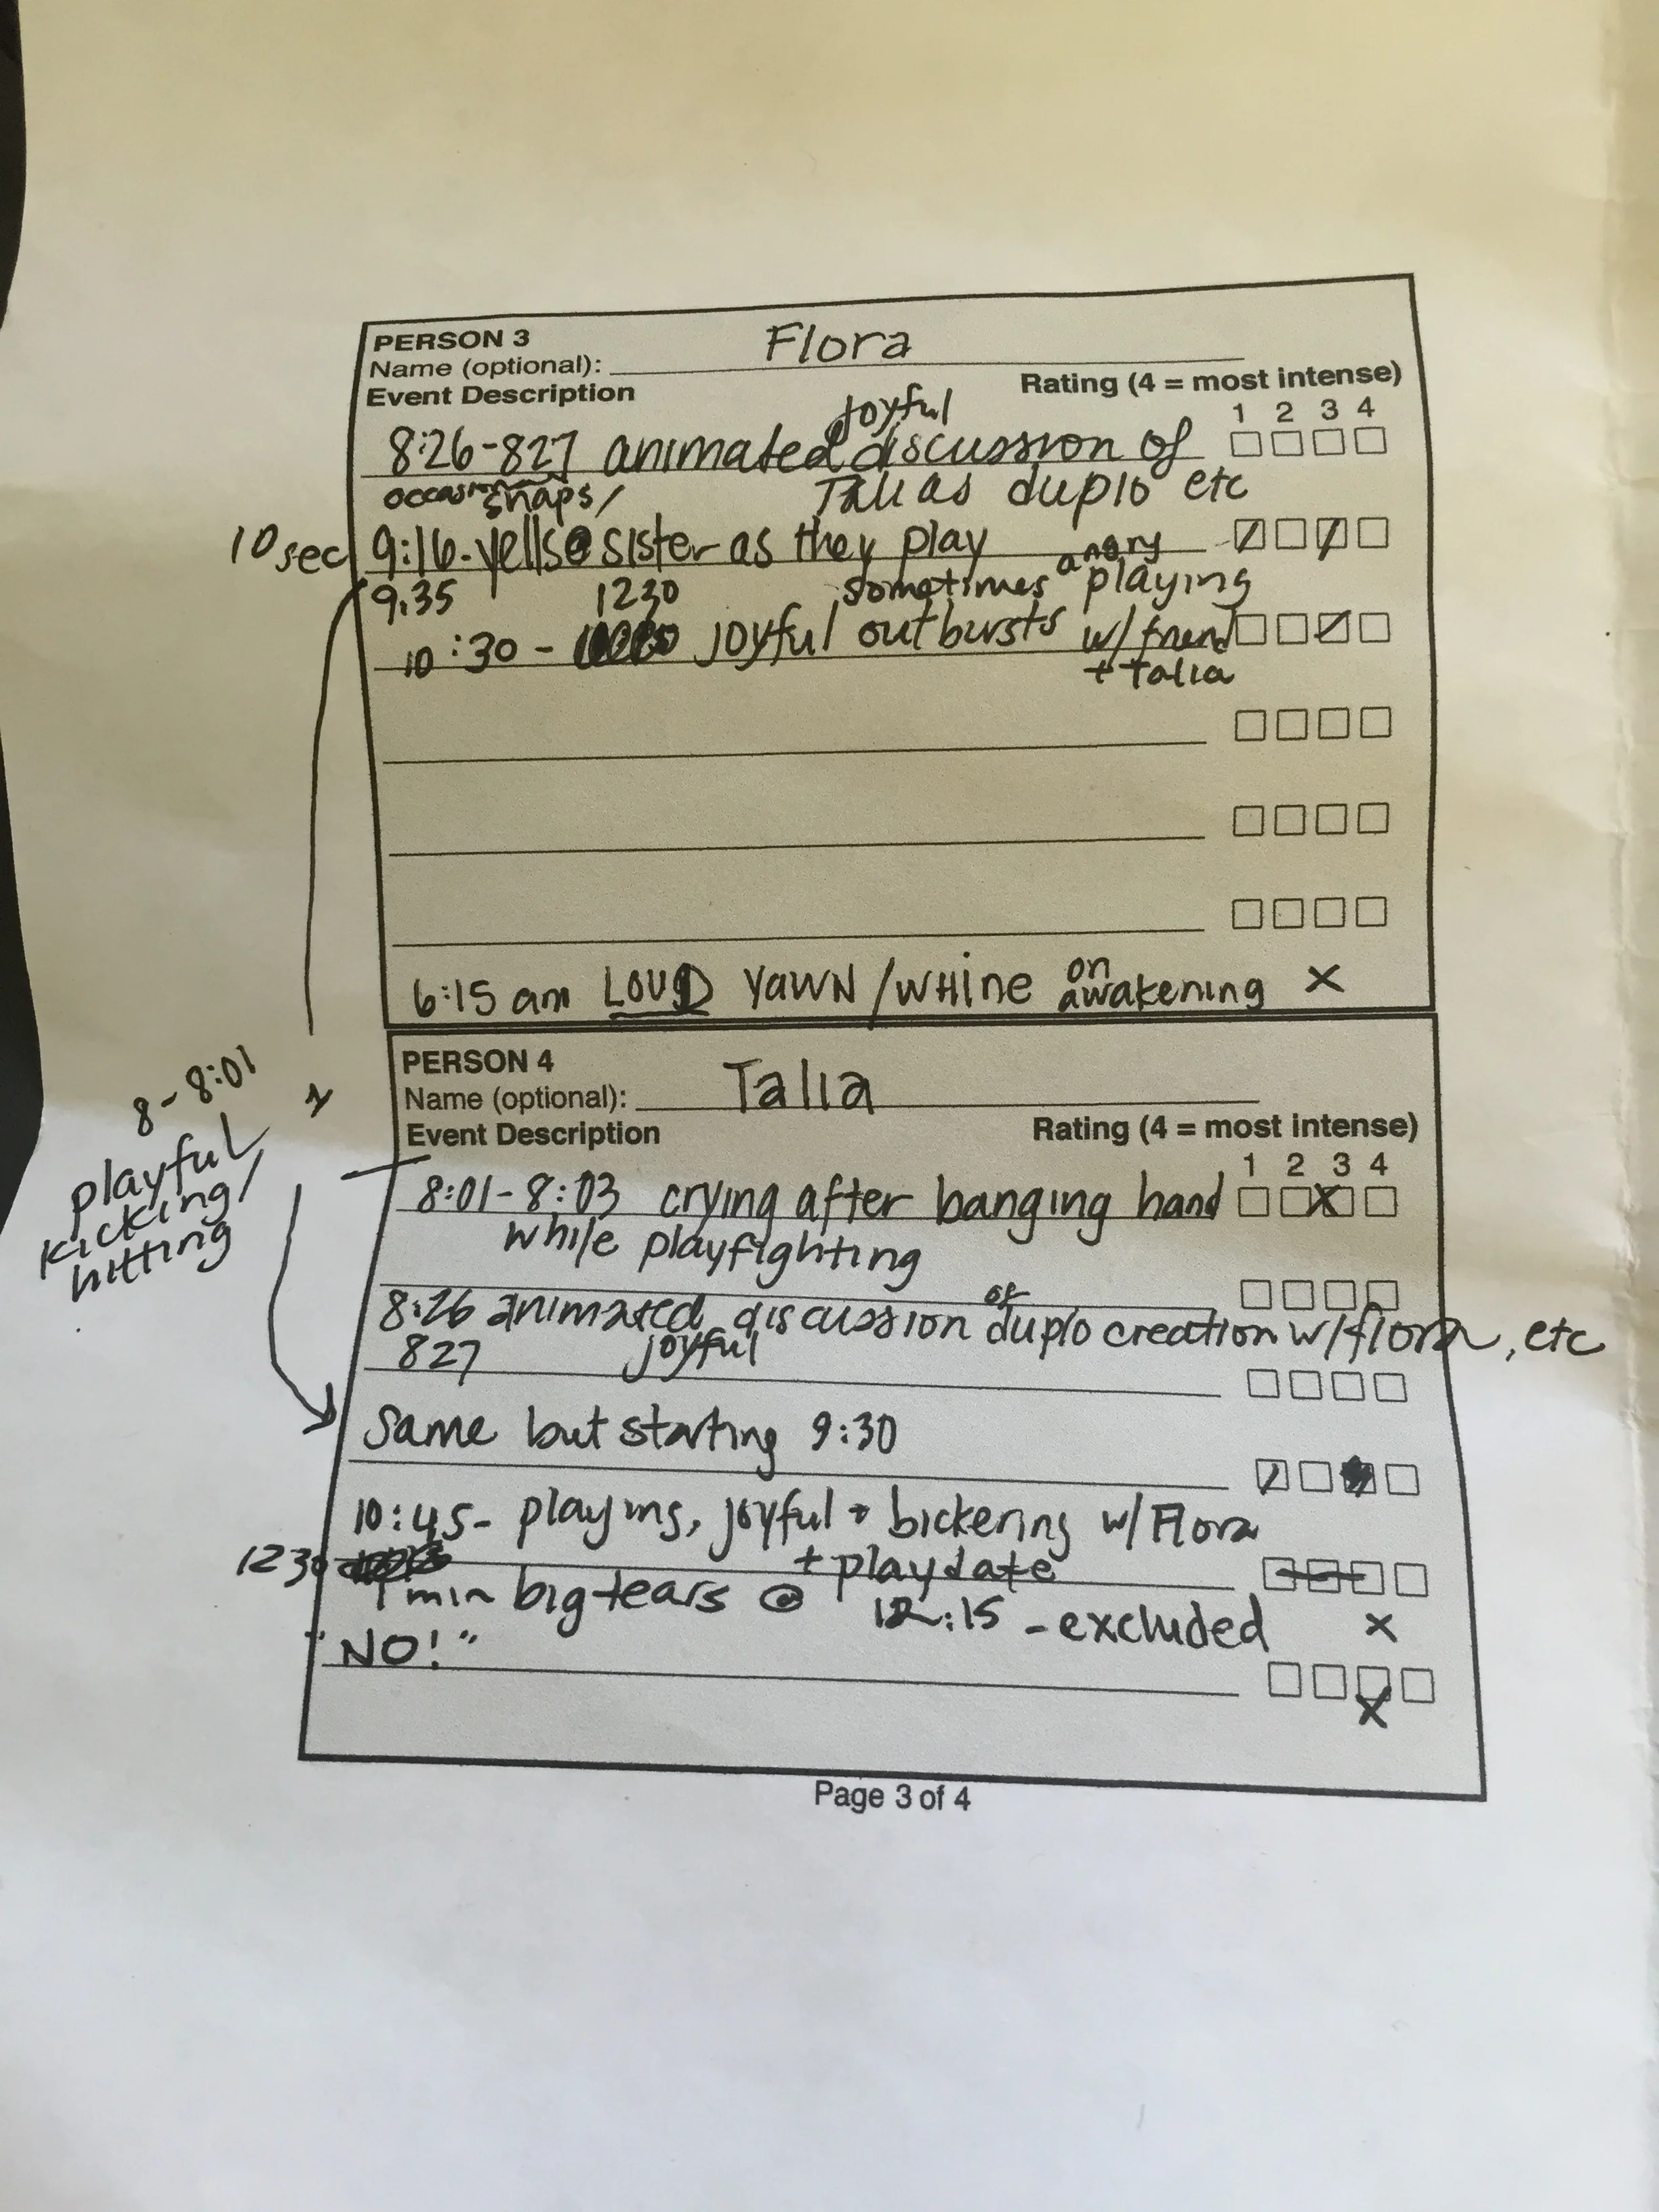 PERSON 3
Name (optional): Flora
Event Description
Rating (4 = most intense)
1 2 3 4
joyful
8:26-827 animated discussion of
Talias duplo etc
occasion snaps/
10 sec 9:16-yells@sister as they play
9:35
1230 sometimes angry playing
10:30- joyful outbursts w/friend
+ Talia
6:15 am LOUD YAWN/WHINE on awakening X
PERSON 4
Name (optional): Talia
Event Description
Rating (4 = most intense)
1 2 3 4
8-8:01
playful
kicking/
hitting
8:01-8:03 crying after banging hand X
while playfighting
8:26 animated discussion of duplo creation w/flora, etc
827 joyful
Same but starting 9:30
10:45- playing, joyful + bickering w/Flora
1230 + playdate
1 min big tears @ 12:15 - excluded X
"NO!"
X
Page 3 of 4